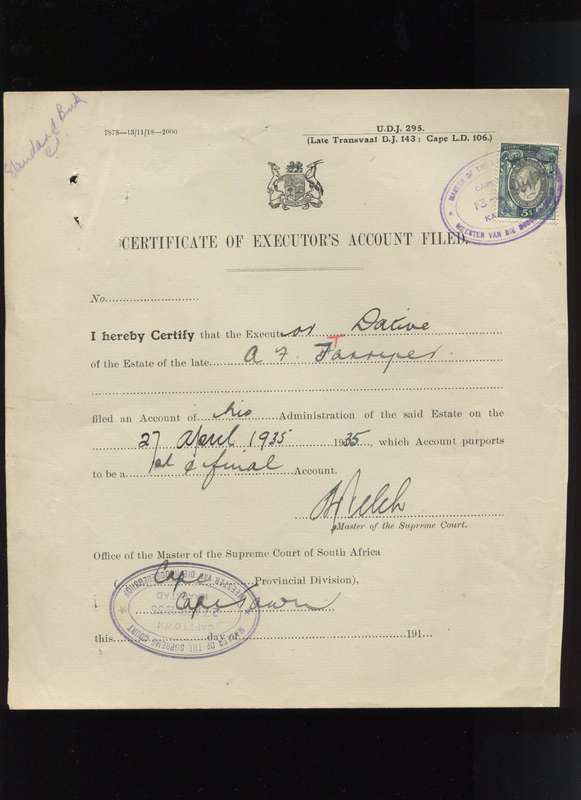 Standard Bank
7878—13/11/18—2000
U.D.J. 295.
(Late Transvaal D.J. 143; Cape L.D. 106.)
CERTIFICATE OF EXECUTOR'S ACCOUNT FILED.
No.
I hereby Certify that the Executor Dative
of the Estate of the late A F
filed an Account of his Administration of the said Estate on the
27 April 1935 1935, which Account purports
to be a 1st & final Account.
Master of the Supreme Court.
Office of the Master of the Supreme Court of South Africa
(Cape Provincial Division),
Cape Town
this day of 191
MASTER OF THE SUPREME COURT
CAPE TOWN